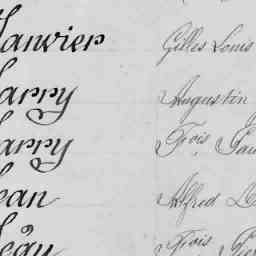 Janvier Gilles Louis
arry Augustin
arry Fçois
ean Alfred
égu Fçois